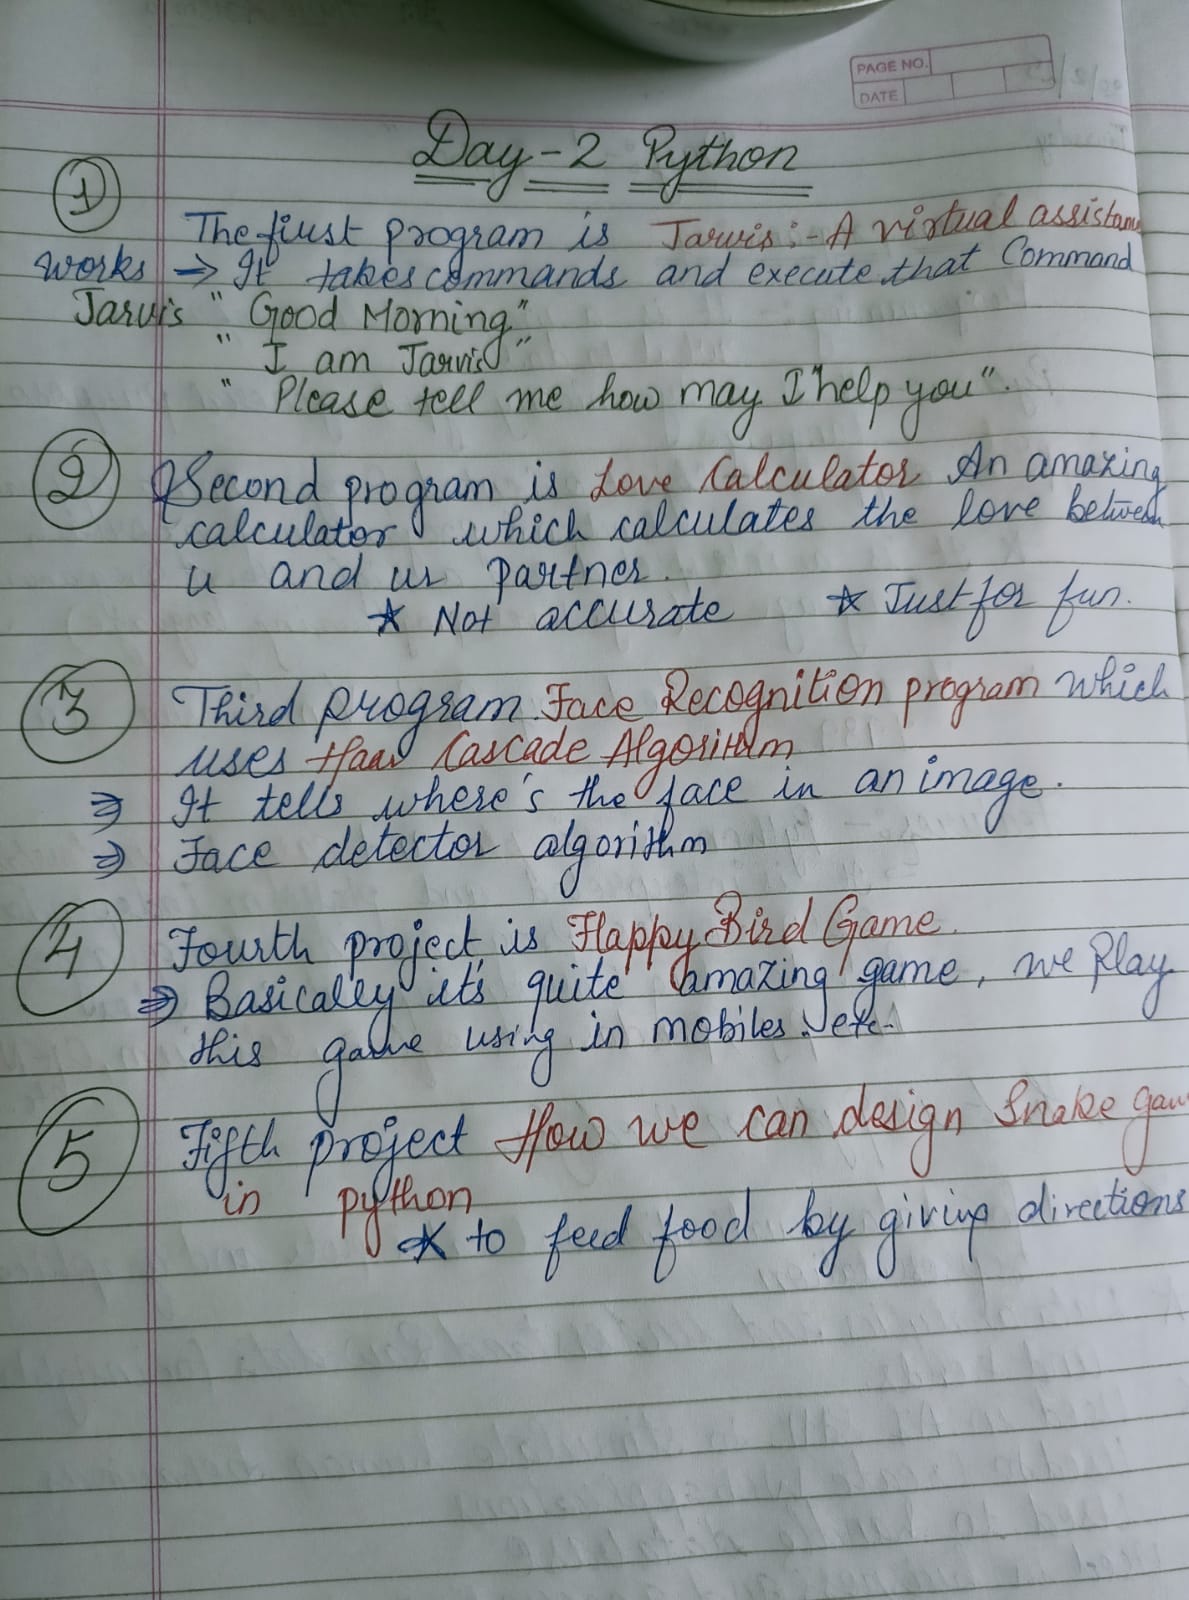 PAGE NO.
DATE
Day-2 Python
1
The first program is Jarvis:- A virtual assistan
works ⇒ It takes commands and execute that Command
Jarvis "Good Morning"
" I am Jarvis"
" Please tell me how may I help you".
2 Second program is Love Calculator An amazing
calculator which calculates the love between
u and ur partner.
* Not accurate * Just for fun.
3 Third program Face Recognition program which
uses Haar Cascade Algorithm
⇒ It tells where's the face in an image.
⇒ Face detector algorithm
4 Fourth project is Flappy Bird Game.
⇒ Basically it's quite amazing game, we play
this game using in mobiles. etc.
5 Fifth project How we can design Snake gam
in python
* to feed food by giving directions